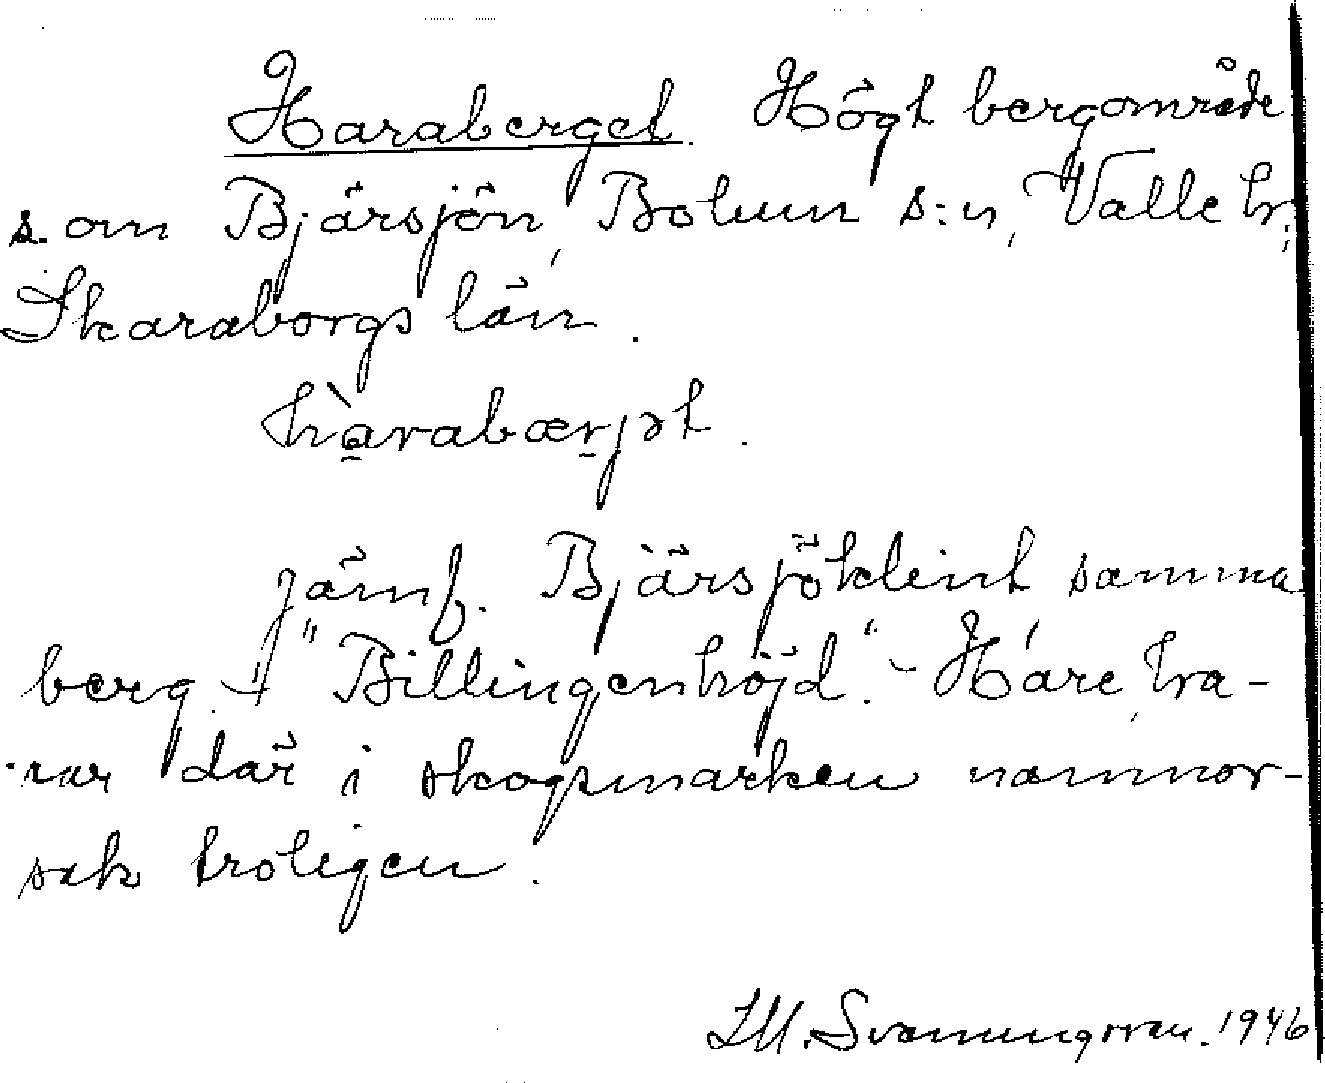 Haraberget. Högt bergområde
s. om Bjärsjön, Bolum s:n, Valle hr;
Skaraborgs län.
hàrabærjət.
Jämf. Bjärsjöklint samma
berg + "Billingenhöjd". - Hare, ha-
rar där i skogsmarken namnor-
sak troligen.
Svanungsson. 1946